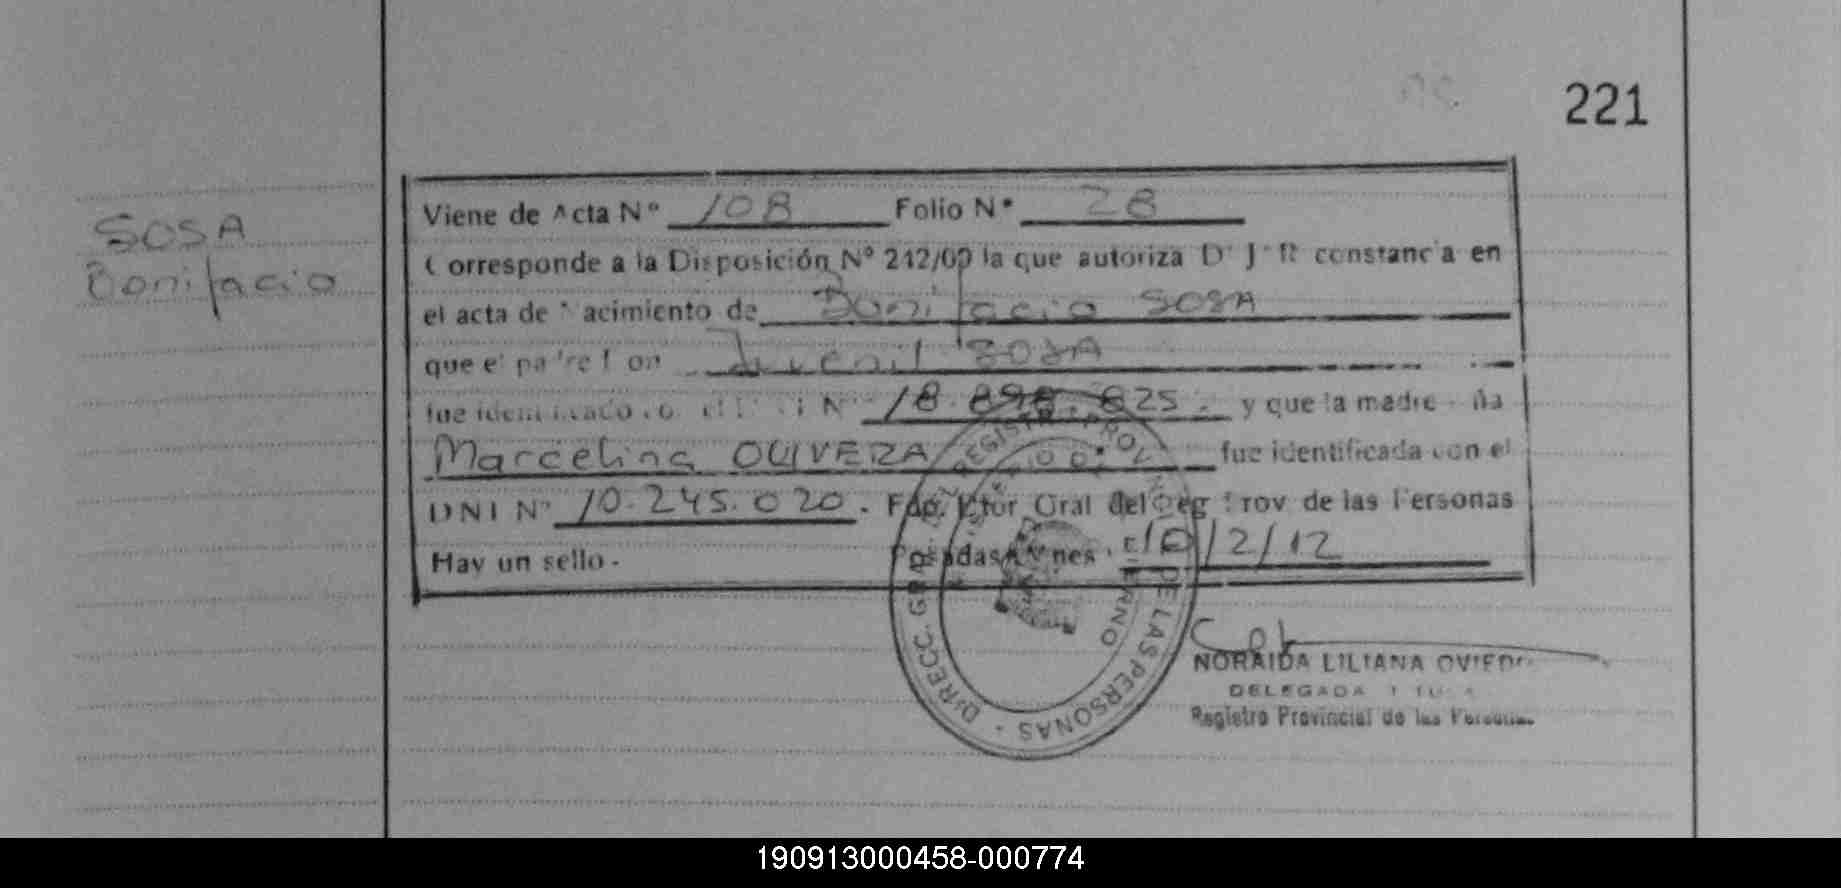 221
SOSA
Bonifacio
Viene de Acta N° 108 Folio N° 28
Corresponde a la Disposición N° 212/00 la que autoriza D J R constancia en
el acta de Nacimiento de Bonifacio SOSA
que el padre Don Juvenil SOSA
fue identificado N° 18.898.825. y que la madre Ña
Marcelina OLIVERA fue identificada con el
DNI N° 10.245.020. Fdo. Dctor Gral del Reg Prov de las Personas
Hay un sello. Posadas Mnes. 10/2/12
DIRECC. GRAL. REGISTRO PROV. DE LAS PERSONAS
NORAIDA LILIANA OVIEDO
DELEGADA
Registro Provincial de las Personas
190913000458-000774